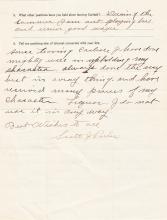 3. What other positions have you held since leaving Carlisle? During the
Summer Season out playing ball
and union good wages
4. Tell me anything else of interest connected with your life.
Since leaving Carlisle I have done
mighty well in upholding my
character always done the very
best in every thing and have
received many praises of my
Character Liquor I do not
use it in any way
Best Wishes to all